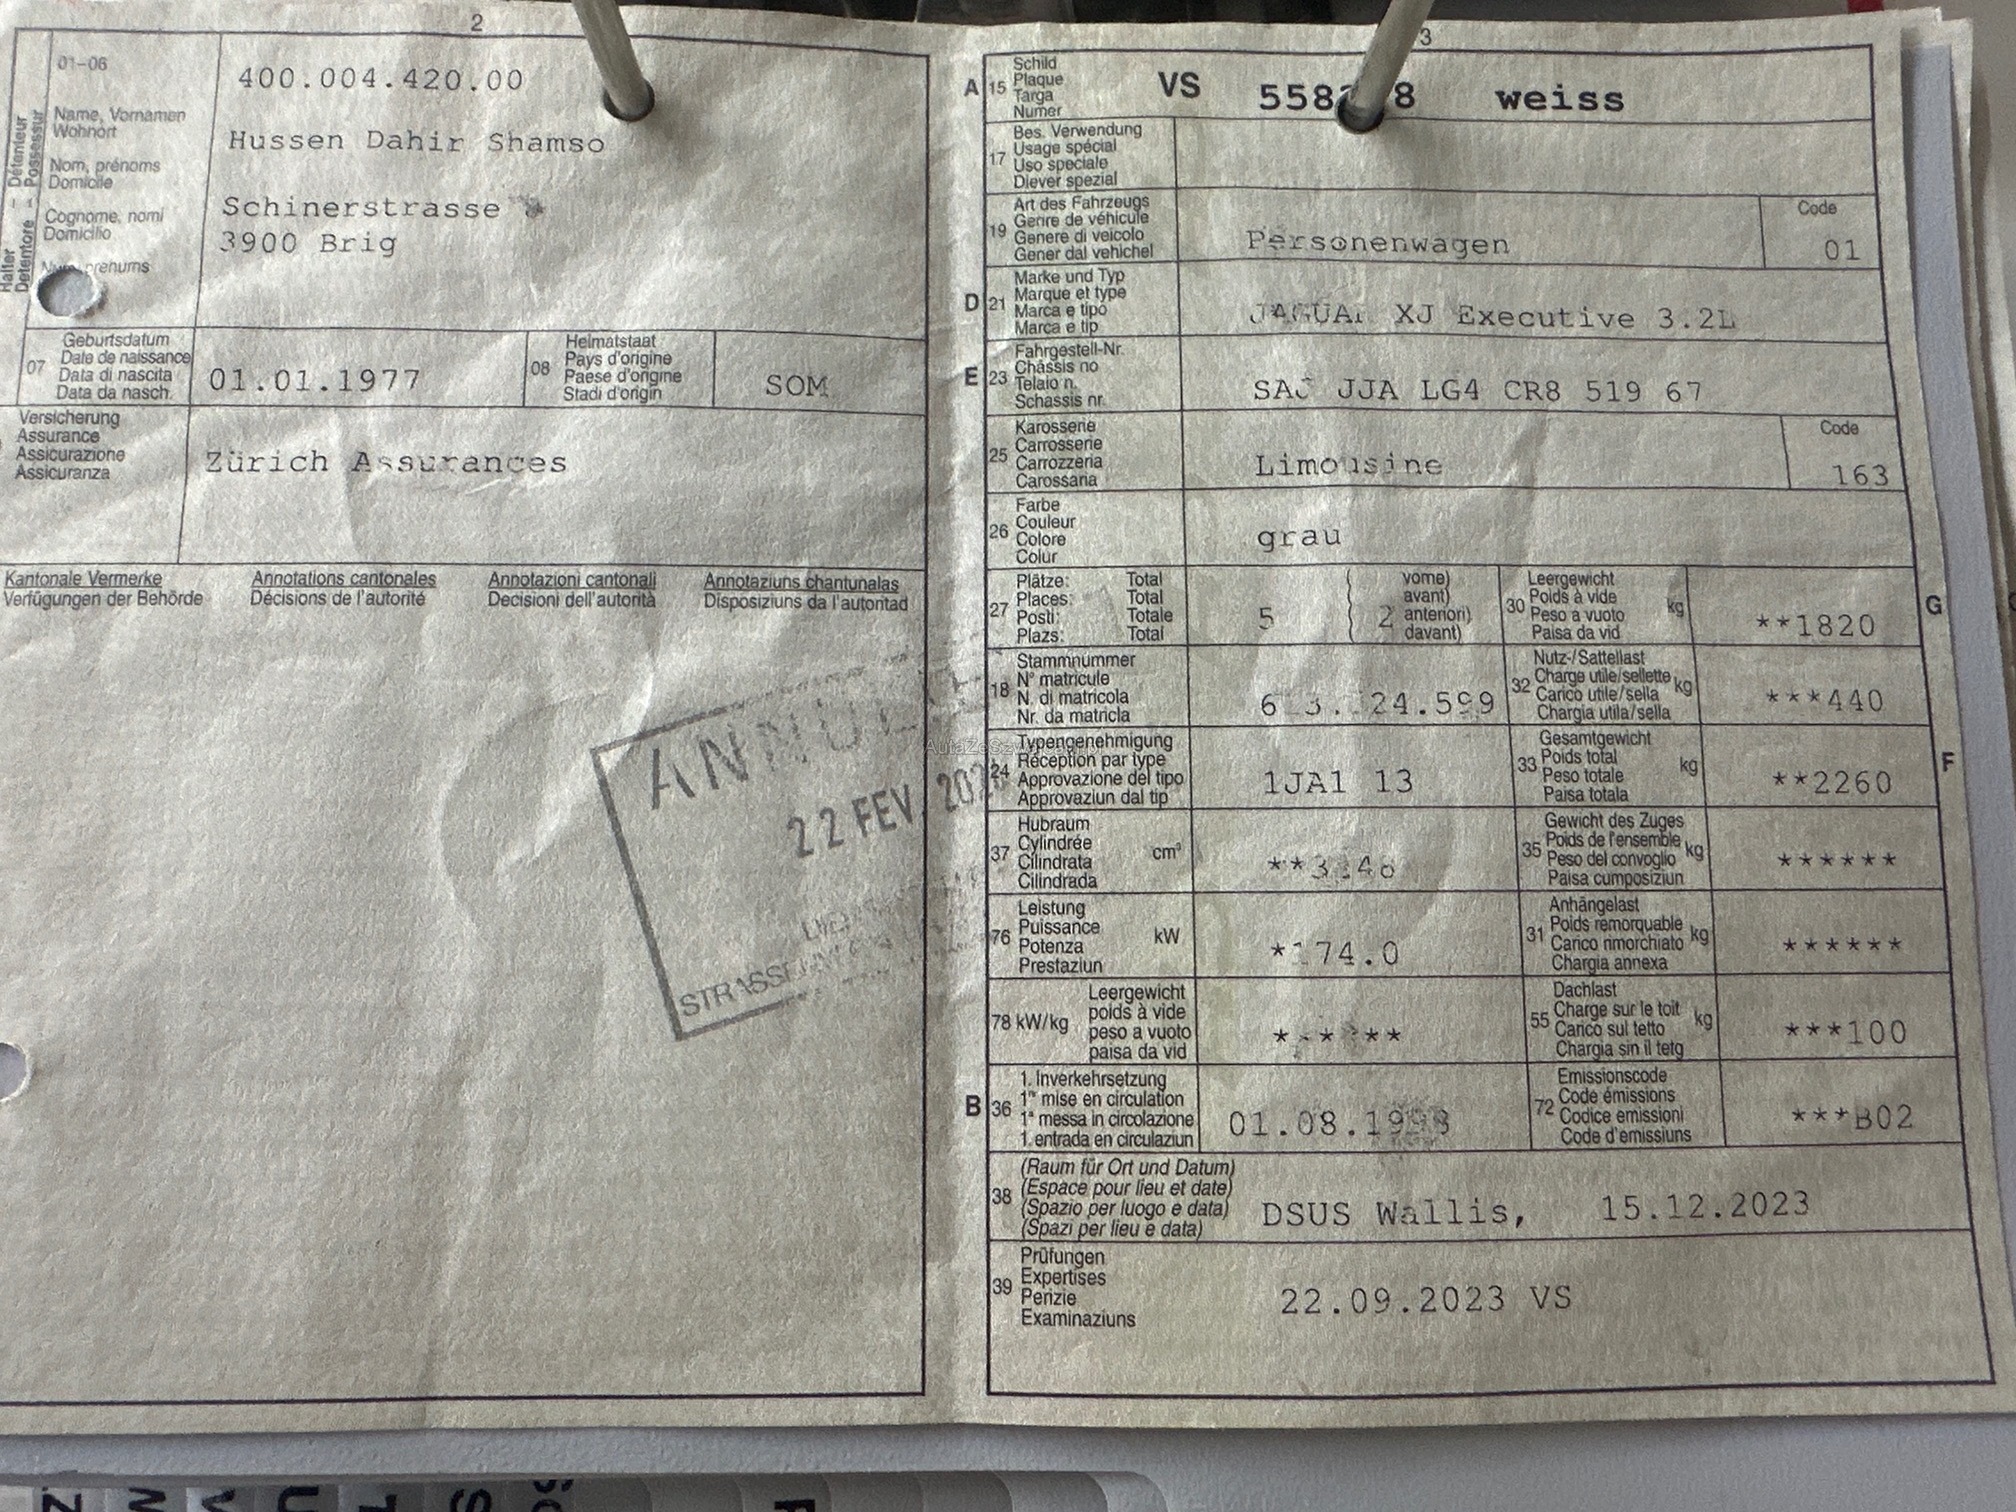 2
01-06
400.004.420.00
Name, Vornamen
Wohnort
Hussen Dahir Shamso
Nom, prénoms
Domicile
Cognome, nomi
Domicilio
Schinerstrasse
3900 Brig
prenums
Halter – Détenieur
Detentore – Possessur
07
Geburtsdatum
Date de naissance
Data di nascita
Data da nasch.
01.01.1977
08
Heimatstaat
Pays d'origine
Paese d'origine
Stadi d'origin
SOM
Versicherung
Assurance
Assicurazione
Assicuranza
Zürich Assurances
Kantonale Vermerke
Verfügungen der Behörde
Annotations cantonales
Décisions de l'autorité
Annotazioni cantonali
Decisioni dell'autorità
Annotaziuns chantunalas
Disposiziuns da l'autoritad
22 FEV.
3
A
15
Schild
Plaque
Targa
Numer
VS
weiss
17
Bes. Verwendung
Usage spécial
Uso speciale
Diever spezial
19
Art des Fahrzeugs
Genre de véhicule
Genere di veicolo
Gener dal vehichel
Personenwagen
Code
01
D
21
Marke und Typ
Marque et type
Marca e tipo
Marca e tip
JAGUAR XJ Executive 3.2L
E
23
Fahrgestell-Nr.
Châssis no
Telaio n.
Schassis nr.
SAJ JJA LG4 CR8 519 67
25
Karosserie
Carrosserie
Carrozzeria
Carossaria
Limousine
Code
163
26
Farbe
Couleur
Colore
Colur
grau
27
Plätze: Total
Places: Total
Posti: Totale
Plazs: Total
5
2
vorne)
avant)
anteriori)
davant)
30
Leergewicht
Poids à vide
Peso a vuoto
Paisa da vid
kg
**1820
G
18
Stammnummer
N° matricule
N. di matricola
Nr. da matricla
24.599
32
Nutz-/Sattellast
Charge utile/sellette
Carico utile/sella
Chargia utila/sella
kg
***440
24
Typengenehmigung
Réception par type
Approvazione del tipo
Approvaziun dal tip
1JA1 13
33
Gesamtgewicht
Poids total
Peso totale
Paisa totala
kg
**2260
F
37
Hubraum
Cylindrée
Cilindrata
Cilindrada
cm³
35
Gewicht des Zuges
Poids de l'ensemble
Peso del convoglio
Paisa cumposiziun
kg
******
76
Leistung
Puissance
Potenza
Prestaziun
kW
*174.0
31
Anhängelast
Poids remorquable
Carico rimorchiato
Chargia annexa
kg
******
78 kW/kg
Leergewicht
poids à vide
peso a vuoto
paisa da vid
******
55
Dachlast
Charge sur le toit
Carico sul tetto
Chargia sin il tetg
kg
***100
B
36
1. Inverkehrsetzung
1re mise en circulation
1a messa in circolazione
1. entrada en circulaziun
01.08.1998
72
Emissionscode
Code émissions
Codice emissioni
Code d'emissiuns
***B02
38
(Raum für Ort und Datum)
(Espace pour lieu et date)
(Spazio per luogo e data)
(Spazi per lieu e data)
DSUS Wallis, 15.12.2023
39
Prüfungen
Expertises
Perizie
Examinaziuns
22.09.2023 VS